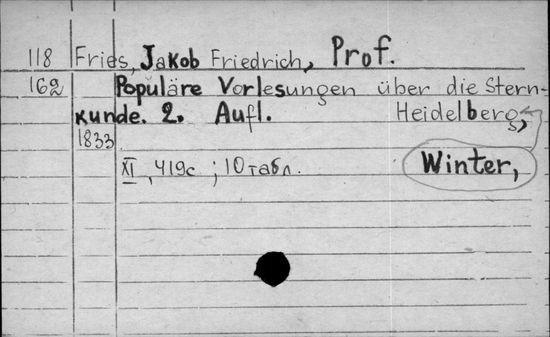 118 Fries, Jakob Friedrich, Prof.
162 Populäre Vorlesungen über die Stern-
kunde. 2. Aufl. Heidelberg,
1833
XI, 419c ; 10 табл. Winter,